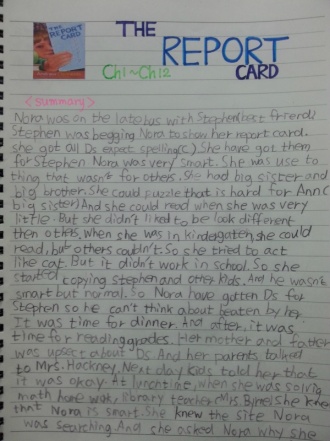 THE
REPORT
CARD
Ch1~Ch12
THE
REPORT
CARD
<summary>
Nora was on the late bus with Stephen(best friend)
Stephen was begging Nora to show her report card.
she got all Ds expect spelling(C). She have got them
for Stephen Nora was very smart. She was use to
thing that wasn't for others. She had big sister and
big brother. She could puzzle that is hard for Ann(
big sister) And she could read when she was very
little. But she didn't liked to be look different
then others, when she was in kindergaten, she could
read, but others couldn't. So she tried to act
like cat. But it didn't work in school. So she
started copying Stephen and other kids. And he wasn't
smart but normal. So Nora have gotten Ds for
Stephen so he can't think about beaten by her.
It was time for dinner. And after, it was
time for reading grades. Her mother and father
was upset about Ds. And her parents talked
to Mrs. Hackney. Next day kids told her that
it was okay. At lunchtime, when she was solving
math home work, library teacher Mrs. Byrne. She knew
that Nora is smart. She knew the site Nora
was searching. And she asked Nora why she